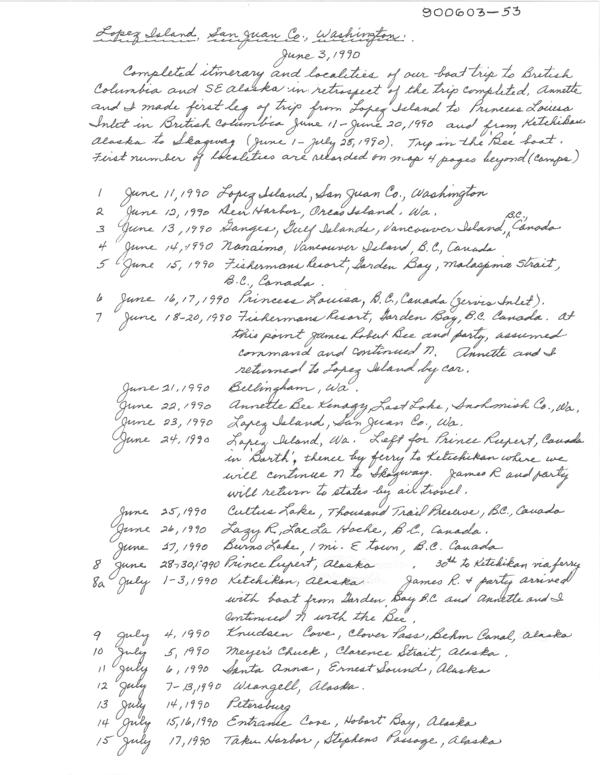 900603-53
Lopez Island, San Juan Co., Washington.
June 3, 1990
Completed itinerary and localities of our boat trip to British
Columbia and SE Alaska in retrospect of the trip completed, Annette
and I made first leg of trip from Lopez Island to Princess Louisa
Inlet in British Columbia June 11-June 20, 1990 and from Ketchikan
Alaska to Skagway (June 1-July 25, 1990). Trip in the "Bee" boat.
First number of localities are recorded on map 4 pages beyond (camps)
1 June 11, 1990 Lopez Island, San Juan Co., Washington
2 June 12, 1990 Deer Harbor, Orcas Island. Wa.
3 June 13, 1990 Ganges, Gulf Islands, Vancouver Island, B.C., Canada
4 June 14, 1990 Nanaimo, Vancouver Island, B.C., Canada
5 June 15, 1990 Fishermans Resort, Garden Bay, Malaspina Strait,
B.C., Canada.
6 June 16,17, 1990 Princess Louisa, B.C., Canada (Jervis Inlet).
7 June 18-20, 1990 Fishermans Resort, Garden Bay, B.C. Canada. At
this point James Robert Bee and party, assumed
command and continued N. Annette and I
returned to Lopez Island by car.
June 21, 1990 Bellingham, Wa.
June 22, 1990 Annette Bee Kenagy, Lost Lake, Snohomish Co., Wa.
June 23, 1990 Lopez Island, San Juan Co., Wa.
June 24, 1990 Lopez Island, Wa. Left for Prince Rupert, Canada
in "Barth", thence by ferry to Ketichikan where we
will continue N to Skagway. James R and party
will return to states by air travel.
June 25, 1990 Cultus Lake, Thousand Trail Preserve, B.C., Canada
June 26, 1990 Lazy R, Lac La Hache, B.C., Canada.
June 27, 1990 Burns Lake, 1 mi. E town, B.C. Canada
8 June 28-30, 1990 Prince Rupert, Alaska . 30th to Ketchikan via ferry
8a July 1-3, 1990 Ketchikan, Alaska James R. & party arrived
with boat from Garden Bay BC and Annette and I
continued N with the Bee.
9 July 4, 1990 Knudsen Cove, Clover Pass, Behm Canal, Alaska
10 July 5, 1990 Meyer's Chuck, Clarence Strait, Alaska.
11 July 6, 1990 Santa Anna, Ernest Sound, Alaska
12 July 7-13, 1990 Wrangell, Alaska.
13 July 14, 1990 Petersburg
14 July 15,16, 1990 Entrance Cove, Hobart Bay, Alaska
15 July 17, 1990 Taku Harbor, Stephens Passage, Alaska